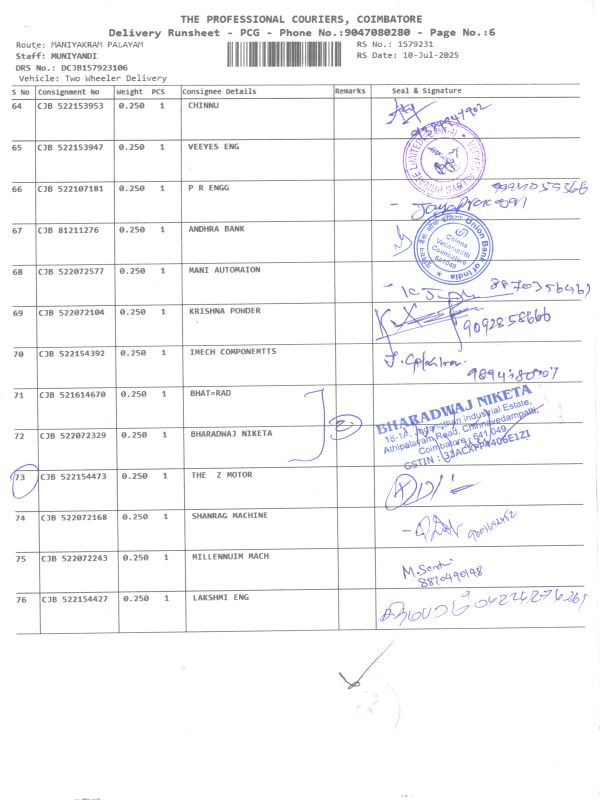 THE PROFESSIONAL COURIERS, COIMBATORE
Delivery Runsheet - PCG - Phone No.:9047080280 - Page No.:6
Route: MANIYAKRAM PALAYAM
RS No.: 1579231
Staff: MUNIYANDI
RS Date: 10-Jul-2025
DRS No.: DCJB157923106
Vehicle: Two Wheeler Delivery
S No Consignment No Weight PCS Consignee Details Remarks Seal & Signature
64 CJB 522153953 0.250 1 CHINNU
65 CJB 522153947 0.250 1 VEEYES ENG
66 CJB 522107181 0.250 1 P R ENGG
67 CJB 81211276 0.250 1 ANDHRA BANK
Union Bank of India
Chinna
Vedampatti
Coimbatore
641049
68 CJB 522072577 0.250 1 MANI AUTOMAION
69 CJB 522072104 0.250 1 KRISHNA POWDER
9092858666
70 CJB 522154392 0.250 1 IMECH COMPONEMTTS
71 CJB 521614670 0.250 1 BHAT=RAD
72 CJB 522072329 0.250 1 BHARADWAJ NIKETA
2
BHARADWAJ NIKETA
Industrial Estate,
Athipalayam Road, Chinnavedampatti,
Coimbatore - 641 049
GSTIN :
73 CJB 522154473 0.250 1 THE Z MOTOR
74 CJB 522072168 0.250 1 SHANRAG MACHINE
75 CJB 522072243 0.250 1 MILLENNUIM MACH
M. Senthi
8870490148
76 CJB 522154427 0.250 1 LAKSHMI ENG